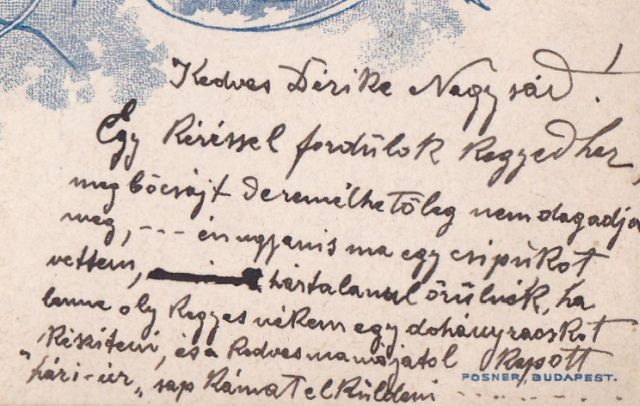 Kedves Térike Nagysád!
Egy Kéréssel fordúlok Kegyedhez,
megbócsájt de remélhetőleg nem dagadja
meg, --- én ugyanis ma egy csipúkot
vettem, hártalanul örülnék, ha
lenne oly Kegyes nékem egy dohányzacskót
Késziteni, és a Kedves mamájatol Kapott
"hári-úr" sapkámat elküldeni
POSNER, BUDAPEST.